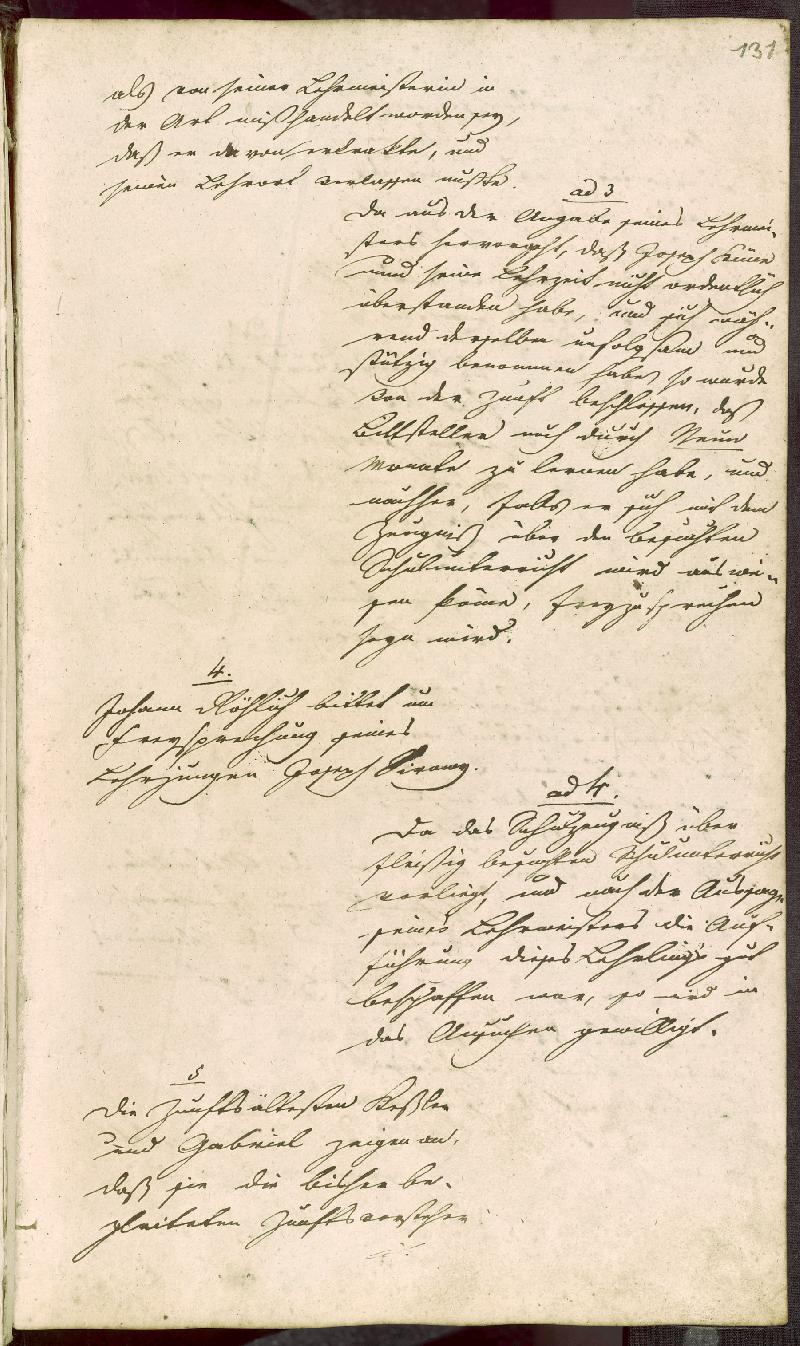 131
als von seiner Lehrmeisterin in
der Art mißhandelt worden sey,
daß er davon erkrakte, und
seinen Lehrort verlassen mußte.
ad 3
Da aus der Angabe seines Lehrmei-
sters hervorgeht, daß Joseph
und seine Lehrzeit nicht ordentlich
überstanden habe, und sich wäh-
rend derselben unfolgsam und
stützig benommen habe, so wurde
von der Zunft beschlossen, daß
Bittsteller noch durch Neun
Monate zu lernen habe, und
nachher, falls er sich mit dem
Zeugniß über den besuchten
Schulunterricht wird auswei-
sen köne, freyzusprechen
seyn wird.
4.
Johann Röhlich bittet um
Freysprechung seines
Lehrjungen Joseph
ad 4.
Da das Schulzeugniß über
fleißig besuchten Schulunterricht
vorliegt, und nach der Aussage
seines Lehrmeisters die Auf-
führung dieses Lehrlings gut
beschaffen war, so wird in
das Ansuchen gewilligt.
5
Die Zunftsältesten Keßler
und Gabriel zeigen an,
daß sie die bisher be-
gleiteten Zunftsvorsteher